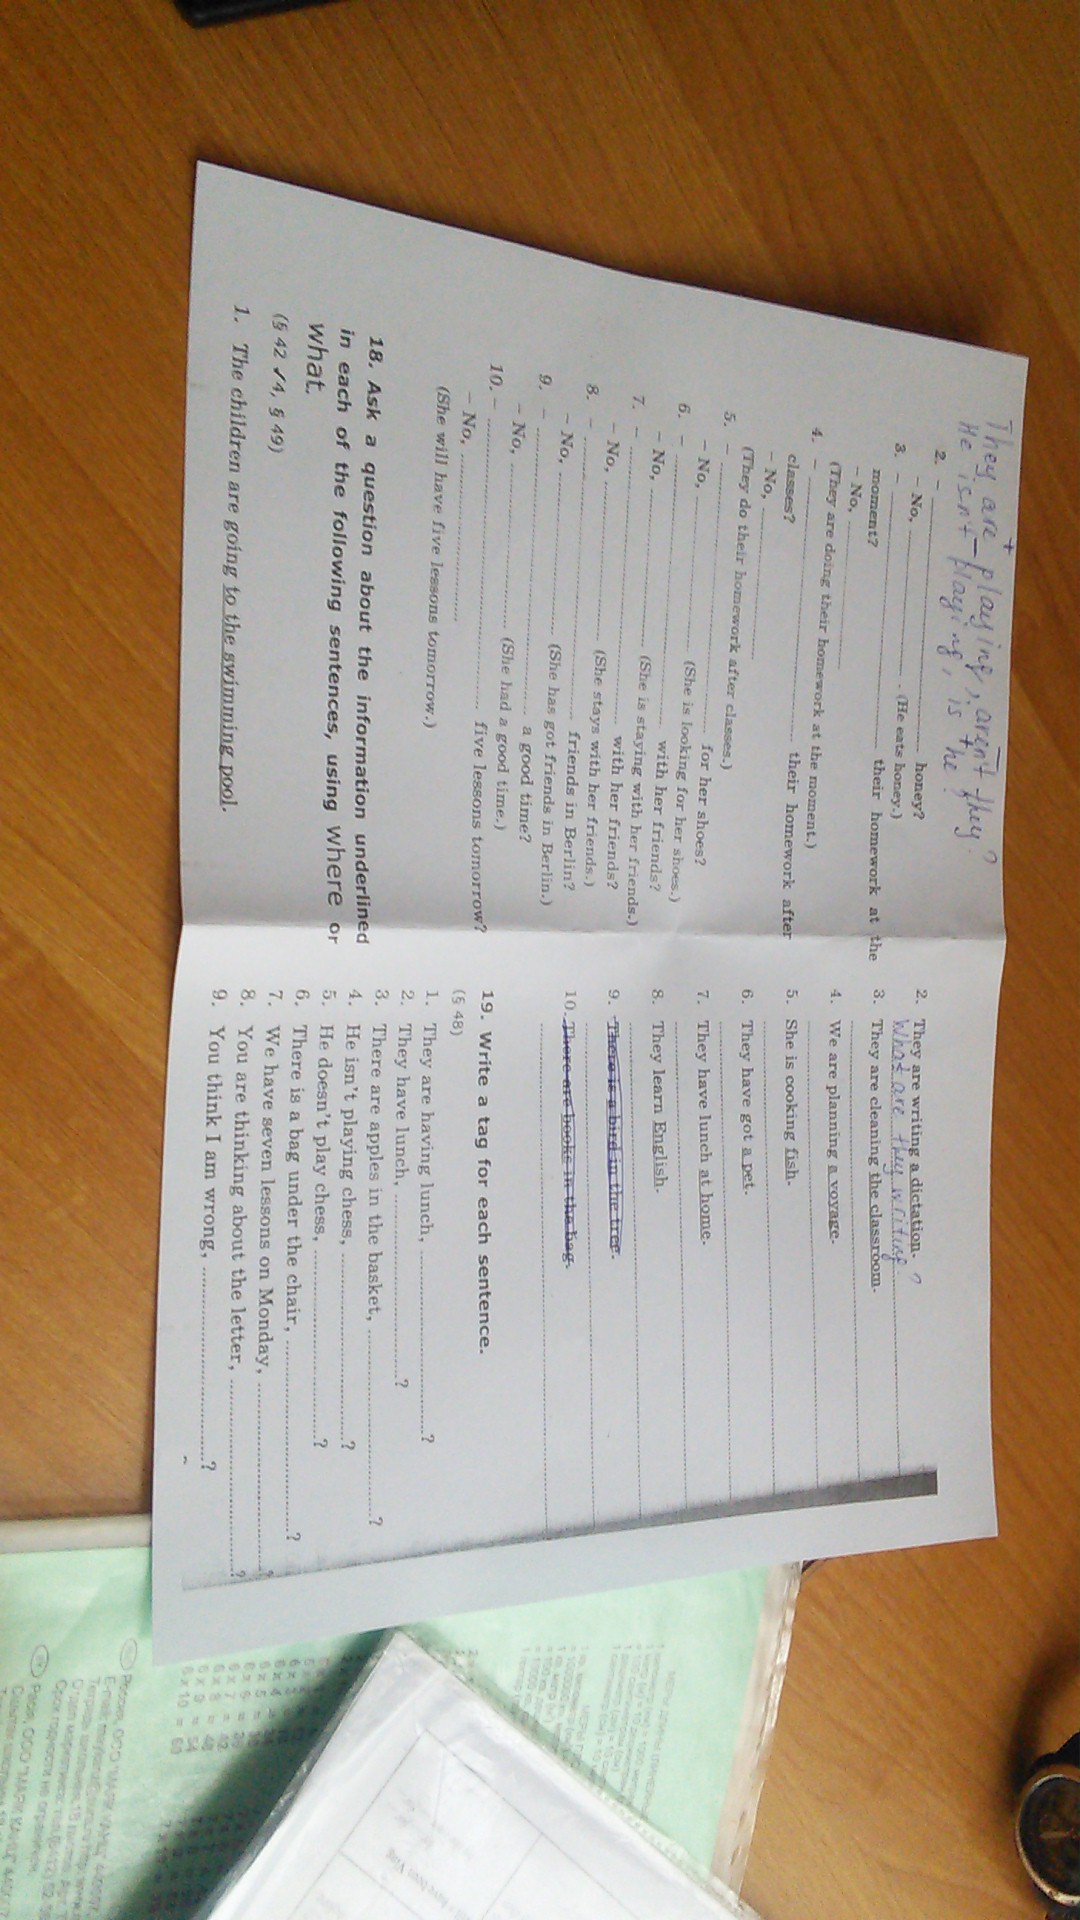 They are + playing, aren't they?
He isn't - playing, is he?
2. – ........ honey?
– No, ........ . (He eats honey.)
3. – ........ their homework at the
moment?
– No, ........
(They are doing their homework at the moment.)
4. – ........ their homework after
classes?
– No, ........
(They do their homework after classes.)
5. – ........ for her shoes?
– No, ........ (She is looking for her shoes.)
6. – ........ with her friends?
– No, ........ (She is staying with her friends.)
7. – ........ with her friends?
– No, ........ (She stays with her friends.)
8. – ........ friends in Berlin?
– No, ........ (She has got friends in Berlin.)
9. – ........ a good time?
– No, ........ (She had a good time.)
10. – ........ five lessons tomorrow?
– No, ........
(She will have five lessons tomorrow.)
18. Ask a question about the information underlined
in each of the following sentences, using where or
what.
(§ 42 ✓4, § 49)
1. The children are going to the swimming pool.
2. They are writing a dictation.
What are they writing?
3. They are cleaning the classroom.
4. We are planning a voyage.
5. She is cooking fish.
6. They have got a pet.
7. They have lunch at home.
8. They learn English.
9. There is a bird in the tree.
10. There are books in the bag.
19. Write a tag for each sentence.
(§ 48)
1. They are having lunch, ........?
2. They have lunch, ........?
3. There are apples in the basket, ........?
4. He isn't playing chess, ........?
5. He doesn't play chess, ........?
6. There is a bag under the chair, ........?
7. We have seven lessons on Monday, ........?
8. You are thinking about the letter, ........?
9. You think I am wrong, ........?